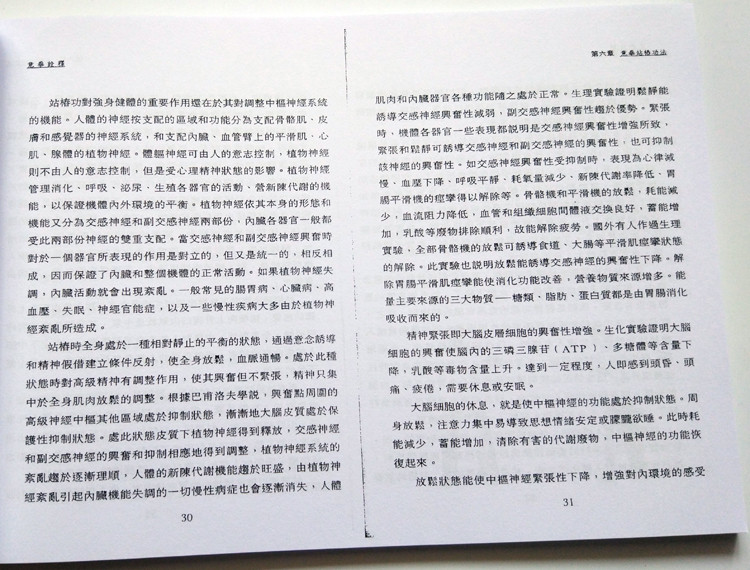 意拳詮釋
站樁功對強身健體的重要作用還在於其對調整中樞神經系統
的機能。人體的神經按支配的區域和功能分為支配骨骼肌、皮
膚和感覺器的神經系統，和支配內臟、血管臂上的平滑肌、心
肌、腺體的植物神經。體軀神經可由人的意志控制，植物神經
則不由人的意志控制，但是受心理精神狀態的影響。植物神經
管理消化、呼吸、泌尿、生殖各器官的活動、營新陳代謝的機
能，以保證機體內外環境的平衡。植物神經依其本身的形態和
機能又分為交感神經和副交感神經兩部份，內臟各器官一般都
受此兩部份神經的雙重支配。當交感神經和副交感神經興奮時
對於一個器官所表現的作用是對立的，但又是統一的，相反相
成，因而保證了內臟和整個機體的正常活動。如果植物神經失
調，內臟活動就會出現紊亂。一般常見的腸胃病、心臟病、高
血壓、失眠、神經官能症，以及一些慢性疾病大多由於植物神
經紊亂所造成。
站樁時全身處於一種相對靜止的平衡的狀態，通過意念誘導
和精神假借建立條件反射，使全身放鬆，血脈通暢。處於此種
狀態時對高級精神有調整作用，使其興奮但不緊張，精神只集
中於全身肌肉放鬆的調整。根據巴甫洛夫學說，興奮點周圍的
高級神經中樞其他區域處於抑制狀態，漸漸地大腦皮質處於保
護性抑制狀態。處此狀態皮質下植物神經得到釋放，交感神經
和副交感神經的興奮和抑制相應地得到調整，植物神經系統的
紊亂趨於逐漸理順，人體的新陳代謝機能趨於旺盛，由植物神
經紊亂引起內臟機能失調的一切慢性病症也會逐漸消失，人體
30
第六章 意拳站樁功法
肌肉和內臟器官各種功能隨之處於正常。生理實驗證明鬆靜能
誘導交感神經興奮性減弱，副交感神經興奮性趨於優勢。緊張
時，機體各器官一些表現都說明是交感神經興奮性增強所致，
緊張和鬆靜可誘導交感神經和副交感神經的興奮性，也可抑制
該神經的興奮性。如交感神經興奮性受抑制時，表現為心律減
慢、血壓下降、呼吸平靜、耗氧量減少、新陳代謝率降低、胃
腸平滑機的痙攣得以解除等。骨骼機和平滑機的放鬆，耗能減
少，血流阻力降低，血管和組織細胞間體液交換良好，蓄能增
加，乳酸等廢物排除順利，故能解除疲勞。國外有人作過生理
實驗，全部骨骼機的放鬆可誘導食道、大腸等平滑肌痙攣狀態
的解除。此實驗也說明放鬆能誘導交感神經的興奮性下降。解
除胃腸平滑肌痙攣能使消化功能改善，營養物質來源增多。能
量主要來源的三大物質──糖類、脂肪、蛋白質都是由胃腸消化
吸收而來的。
精神緊張即大腦皮層細胞的興奮性增強。生化實驗證明大腦
細胞的興奮使腦內的三磷三腺苷（ATP）、多糖體等含量下
降，乳酸等毒物含量上升。達到一定程度，人即感到頭昏、頭
痛、疲倦，需要休息或安眠。
大腦細胞的休息，就是使中樞神經的功能處於抑制狀態。周
身放鬆，注意力集中易導致思想情緒安定或朦朧欲睡。此時耗
能減少，蓄能增加，清除有害的代謝廢物，中樞神經的功能恢
復起來。
放鬆狀態能使中樞神經緊張性下降，增強對內環境的感受
31